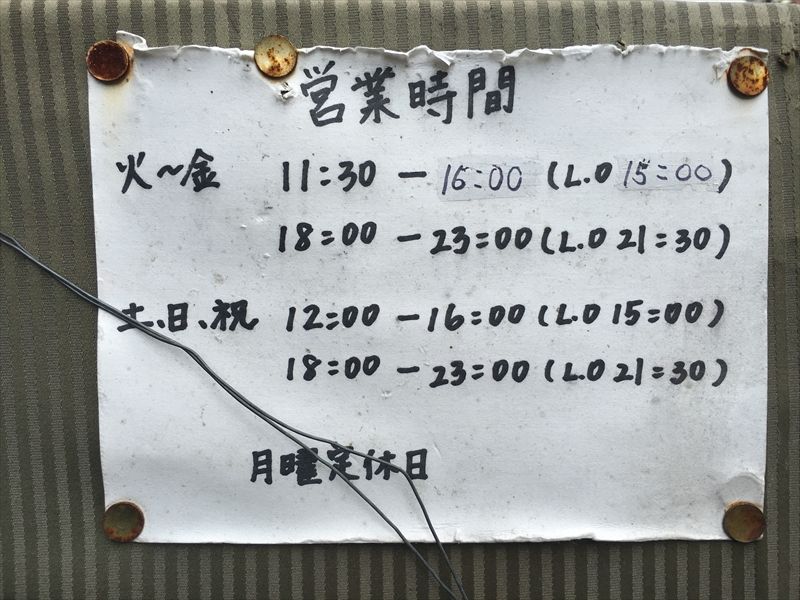 営業時間
火～金 11:30 － 16:00 (L.O 15:00)
18:00 － 23:00 (L.O 21:30)
土、日、祝 12:00 － 16:00 (L.O 15:00)
18:00 － 23:00 (L.O 21:30)
月曜定休日